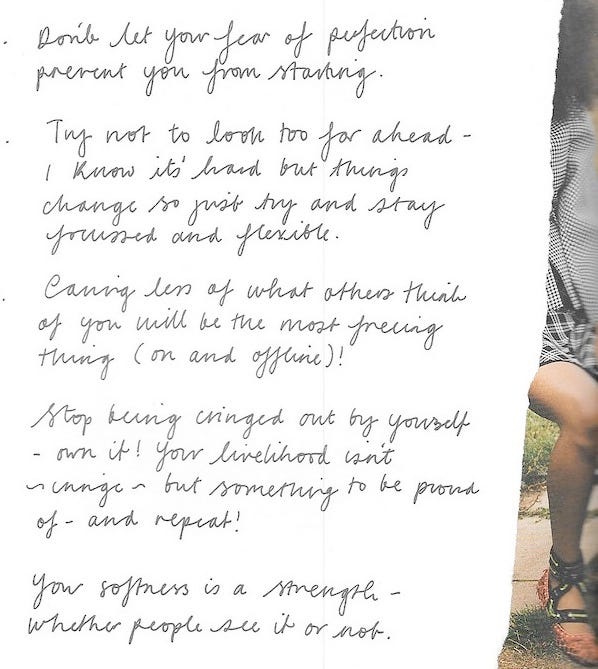 . Don't let your fear of perfection
prevent you from starting.
. Try not to look too far ahead -
I know its' hard but things
change so just try and stay
focussed and flexible.
. Caring less of what others think
of you will be the most freeing
thing (on and offline)!
Stop being cringed out by yourself
- own it! Your livelihood isn't
~ cringe ~ but something to be proud
of - and repeat!
Your softness is a strength -
whether people see it or not.